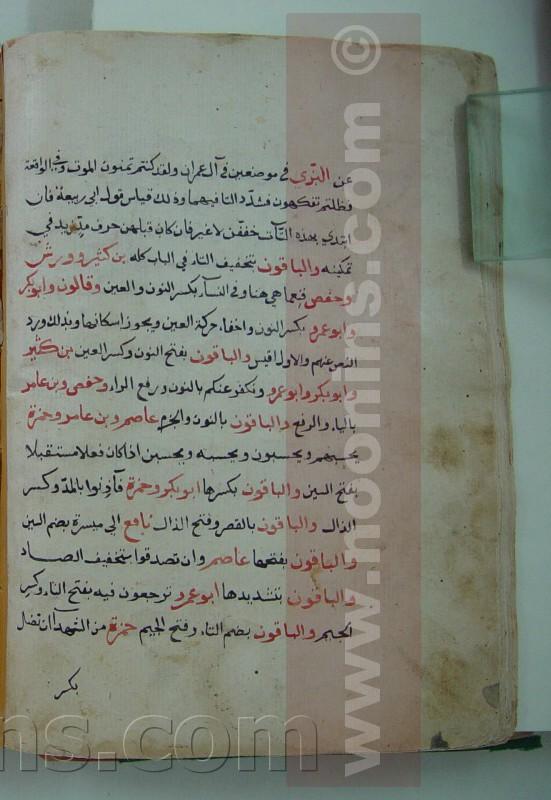 عن البزي في موضعين في آل عمران ولقد كنتم تمنون الموت وفي الواقعة
فظلتم تفكهون فشدد التا فيهما وذلك قياس قول ابي ربيعة فان
ابتدي بهذه التآت خففن لا غير فان كان قبلهن حرف مد زيد في
تمكينه والباقون بتخفيف التاء في الباب كله بن كثير وورش
وحفص فنعما هي هنا وفي النسآء بكسر النون والعين وقالون وابو بكر
وابو عمرو بكسر النون واخفاء حركة العين ويجوز اسكانها وبذلك ورد
النص عنهم والاول اقيس والباقون بفتح النون وكسر العين بن كثير
وابو بكر وابو عمرو ونكفر عنكم بالنون ورفع الراء وحفص وبن عامر
بالياء والرفع والباقون بالنون والجزم عاصم وبن عامر وحمزة
يحسبهم ويحسبون ويحسبه ويحسبن اذا كان فعلا مستقبلا
بفتح السين والباقون بكسرها ابو بكر وحمزة فآذنوا بالمد وكسر
الذال والباقون بالقصر وفتح الذال نافع الى ميسرة بضم السين
والباقون بفتحها عاصم وان تصدقوا بتخفيف الصاد
والباقون بتشديدها ابو عمرو ترجعون فيه بفتح التاء وكسر
الجيم والباقون بضم التاء وفتح الجيم حمزة من الشهدآ ان تضل
بكسر
www.moonins.com ©
ns.com